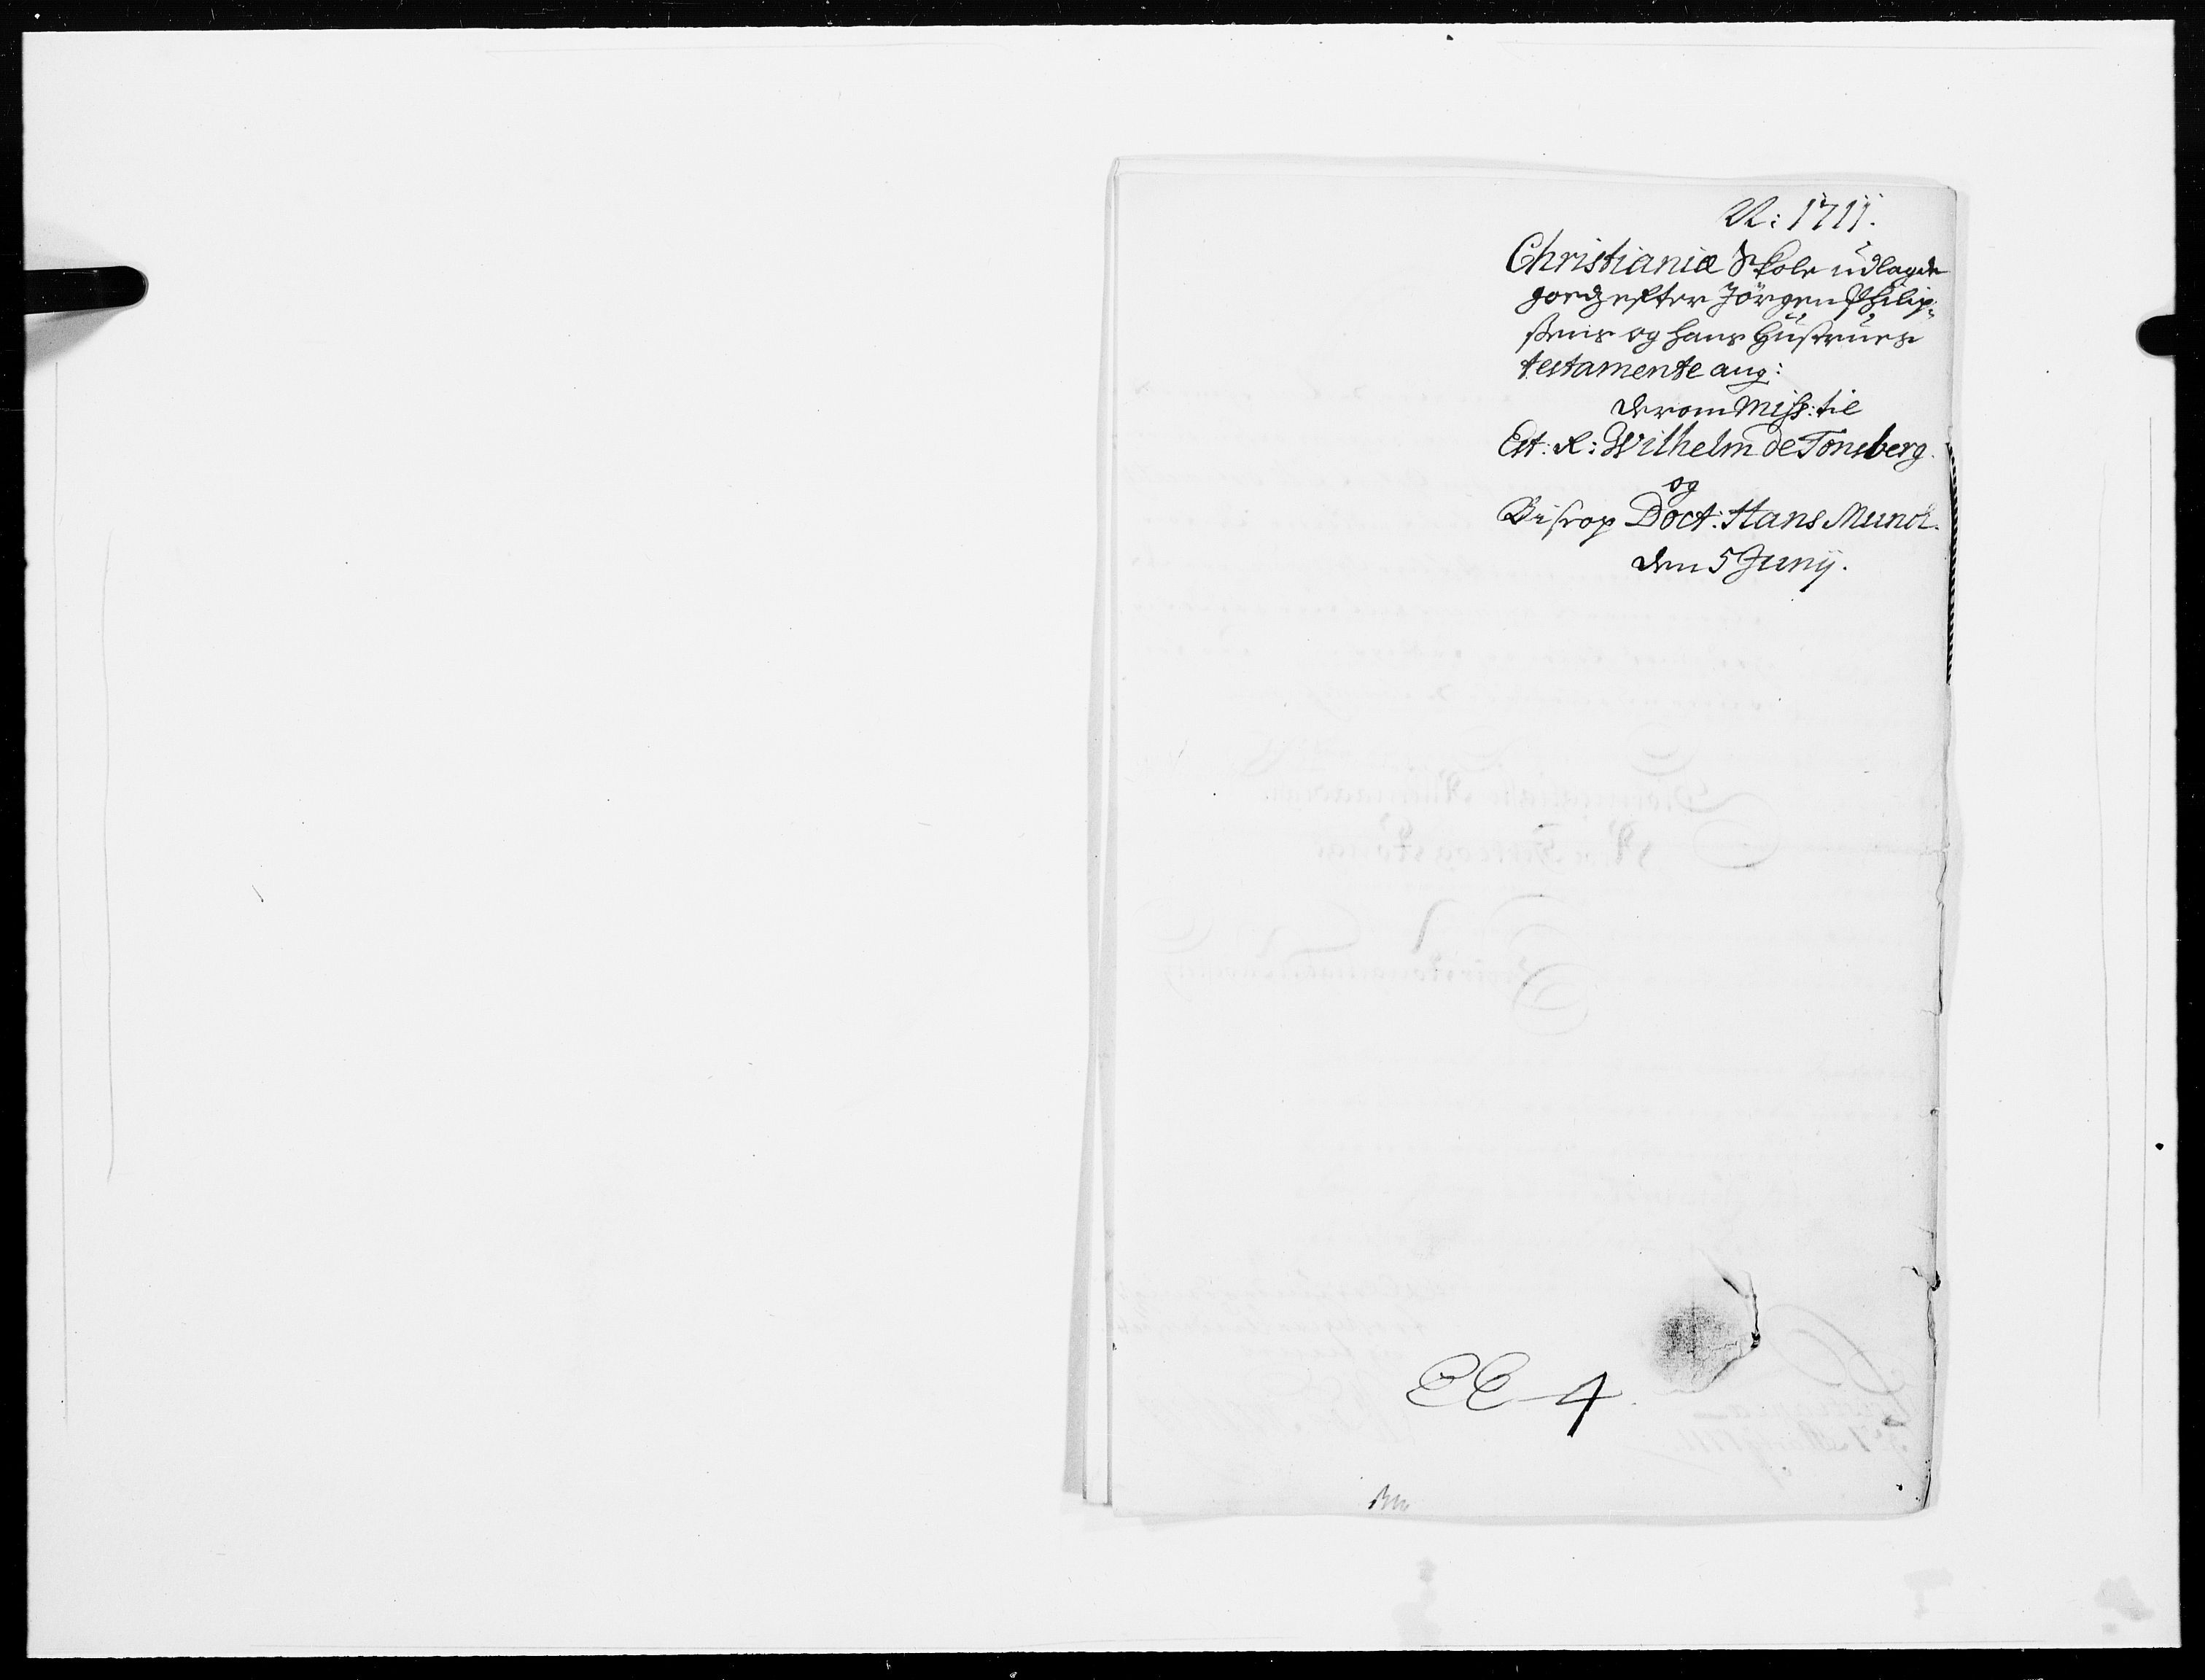 N: 1711.
Christianiæ Skole udlagde
goedz efter Jörgen Philip-
sens og hans Hustrues
testamente ang:
derom Miss: til
Est: R: Wilhelm de Tonsberg.
og
Biscop Doct: Hans Munch.
den 5 Junij.
4